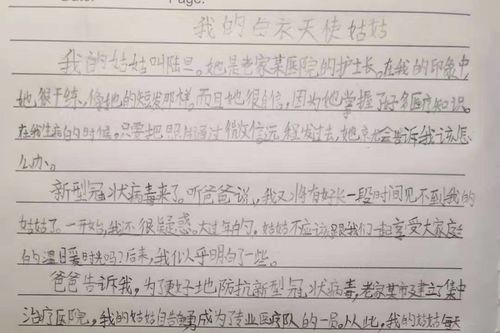 Date: Page:
我的白衣天使姑姑
我的姑姑叫陆旦。她是老家某医院的护士长。在我的印象中
她很干练,像她的短发那样。而且她很自信,因为她掌握了好多医疗知识。
在我生病的时候,只要把照片通过微信远程发过去,她总会告诉我该怎
么办。
新型冠状病毒来了。听爸爸说,我又将有好长一段时间见不到我的
姑姑了。一开始,我还很疑惑。大过年的,姑姑不应该跟我们一起享受大家庭
的温暖时光吗?后来,我似乎明白了一些。
爸爸告诉我,为了更好地防抗新型冠状病毒,老家某市建立了集中
治疗医院,我的姑姑自告奋勇成为了专业医疗队的一员。从此,我的姑姑每天